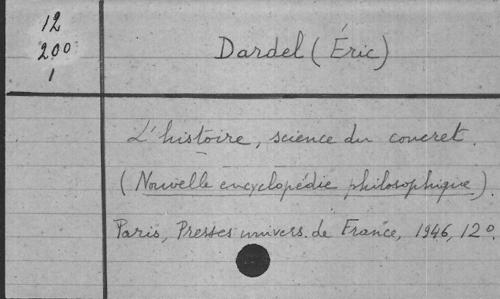 12
200
1
Dardel (Éric)
L'histoire, science du concret.
(Nouvelle encyclopédie philosophique).
Paris, Presses univers. de France, 1946, 12°.